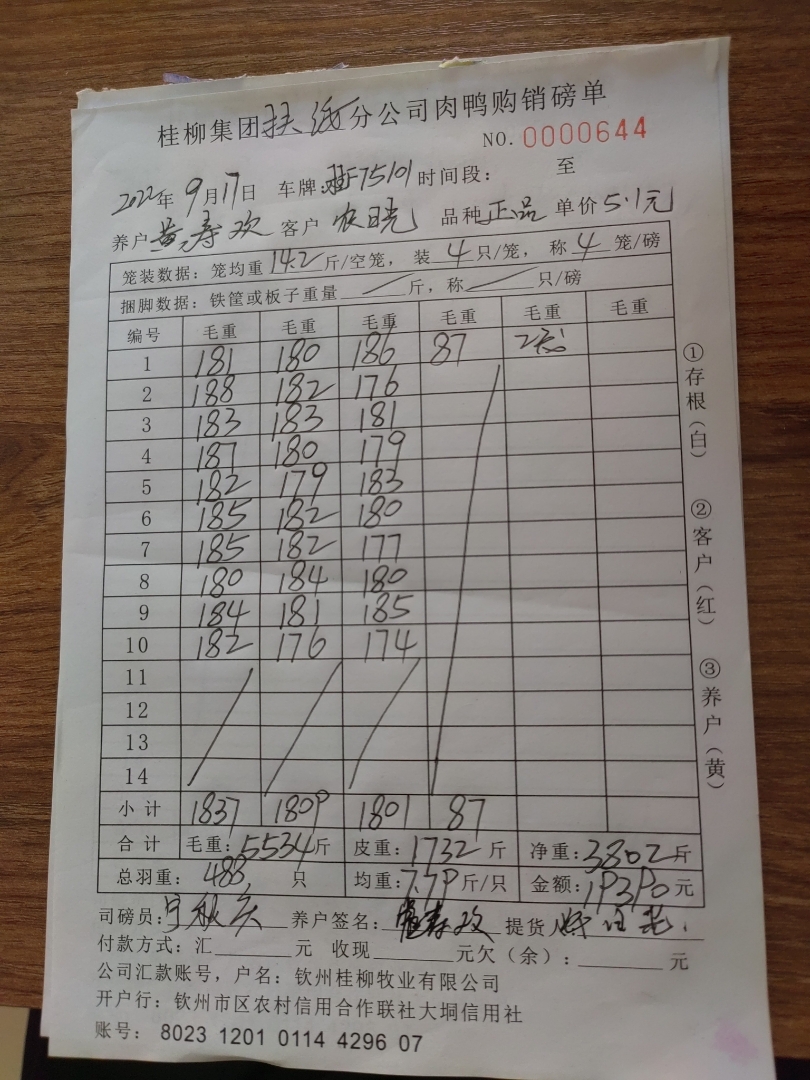 桂柳集团扶绥分公司肉鸭购销磅单
NO. 0000644
2022年9月17日 车牌:桂F75101 时间段: 至
养户 黄寿欢 客户 农日晓 品种 正品 单价 5.1元
笼装数据: 笼均重 14.2 斤/空笼, 装 4 只/笼, 称 4 笼/磅
捆脚数据: 铁筐或板子重量 / 斤, 称 / 只/磅
编号 毛重 毛重 毛重 毛重 毛重 毛重
1 181 180 186 87 2笼
2 188 182 176
3 183 183 181
4 187 180 179
5 182 179 183
6 185 182 180
7 185 182 177
8 180 184 180
9 184 181 185
10 182 176 174
11
12
13
14
小计 1837 1809 1801 87
合计 毛重: 5534斤 皮重: 1732 斤 净重: 3802斤
总羽重: 488 只 均重: 7.79斤/只 金额: 19390元
司磅员: 养户签名: 提货人
付款方式: 汇 元 收现 元欠(余): 元
公司汇款账号, 户名: 钦州桂柳牧业有限公司
开户行: 钦州市区农村信用合作联社大垌信用社
账号: 8023 1201 0114 4296 07
①存根(白) ②客户(红) ③养户(黄)